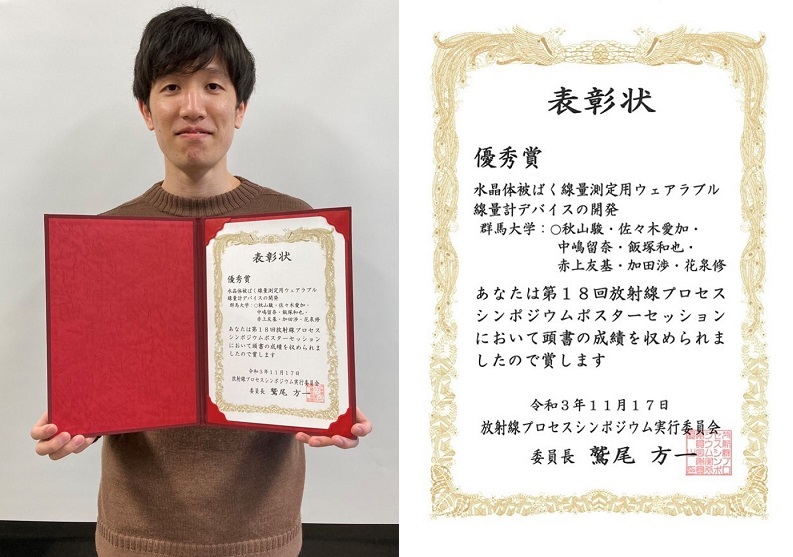 表彰状
優秀賞
水晶体被ばく線量測定用ウェアラブル
線量計デバイスの開発
群馬大学：○秋山駿・佐々木愛加・
中嶋留奈・飯塚和也・
赤上友基・加田渉・花泉修
あなたは第１８回放射線プロセス
シンポジウムポスターセッション
において頭書の成績を収められま
したので賞します
令和３年１１月１７日
放射線プロセスシンポジウム実行委員会
委員長 鷲尾 方一
表彰状
優秀賞
水晶体被ばく線量測定用ウェアラブル
線量計デバイスの開発
群馬大学：○秋山駿・佐々木愛加・
中嶋留奈・飯塚和也・
赤上友基・加田渉・花泉修
あなたは第１８回放射線プロセス
シンポジウムポスターセッション
において頭書の成績を収められま
したので賞します
令和３年１１月１７日
放射線プロセスシンポジウム実行委員会
委員長 鷲尾 方一